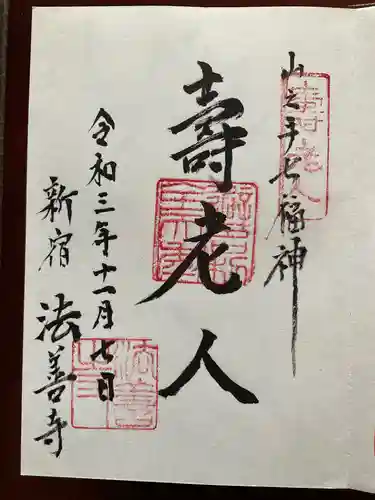 山之手七福神
壽老人
壽老人
令和三年十一月七日
新宿 法善寺